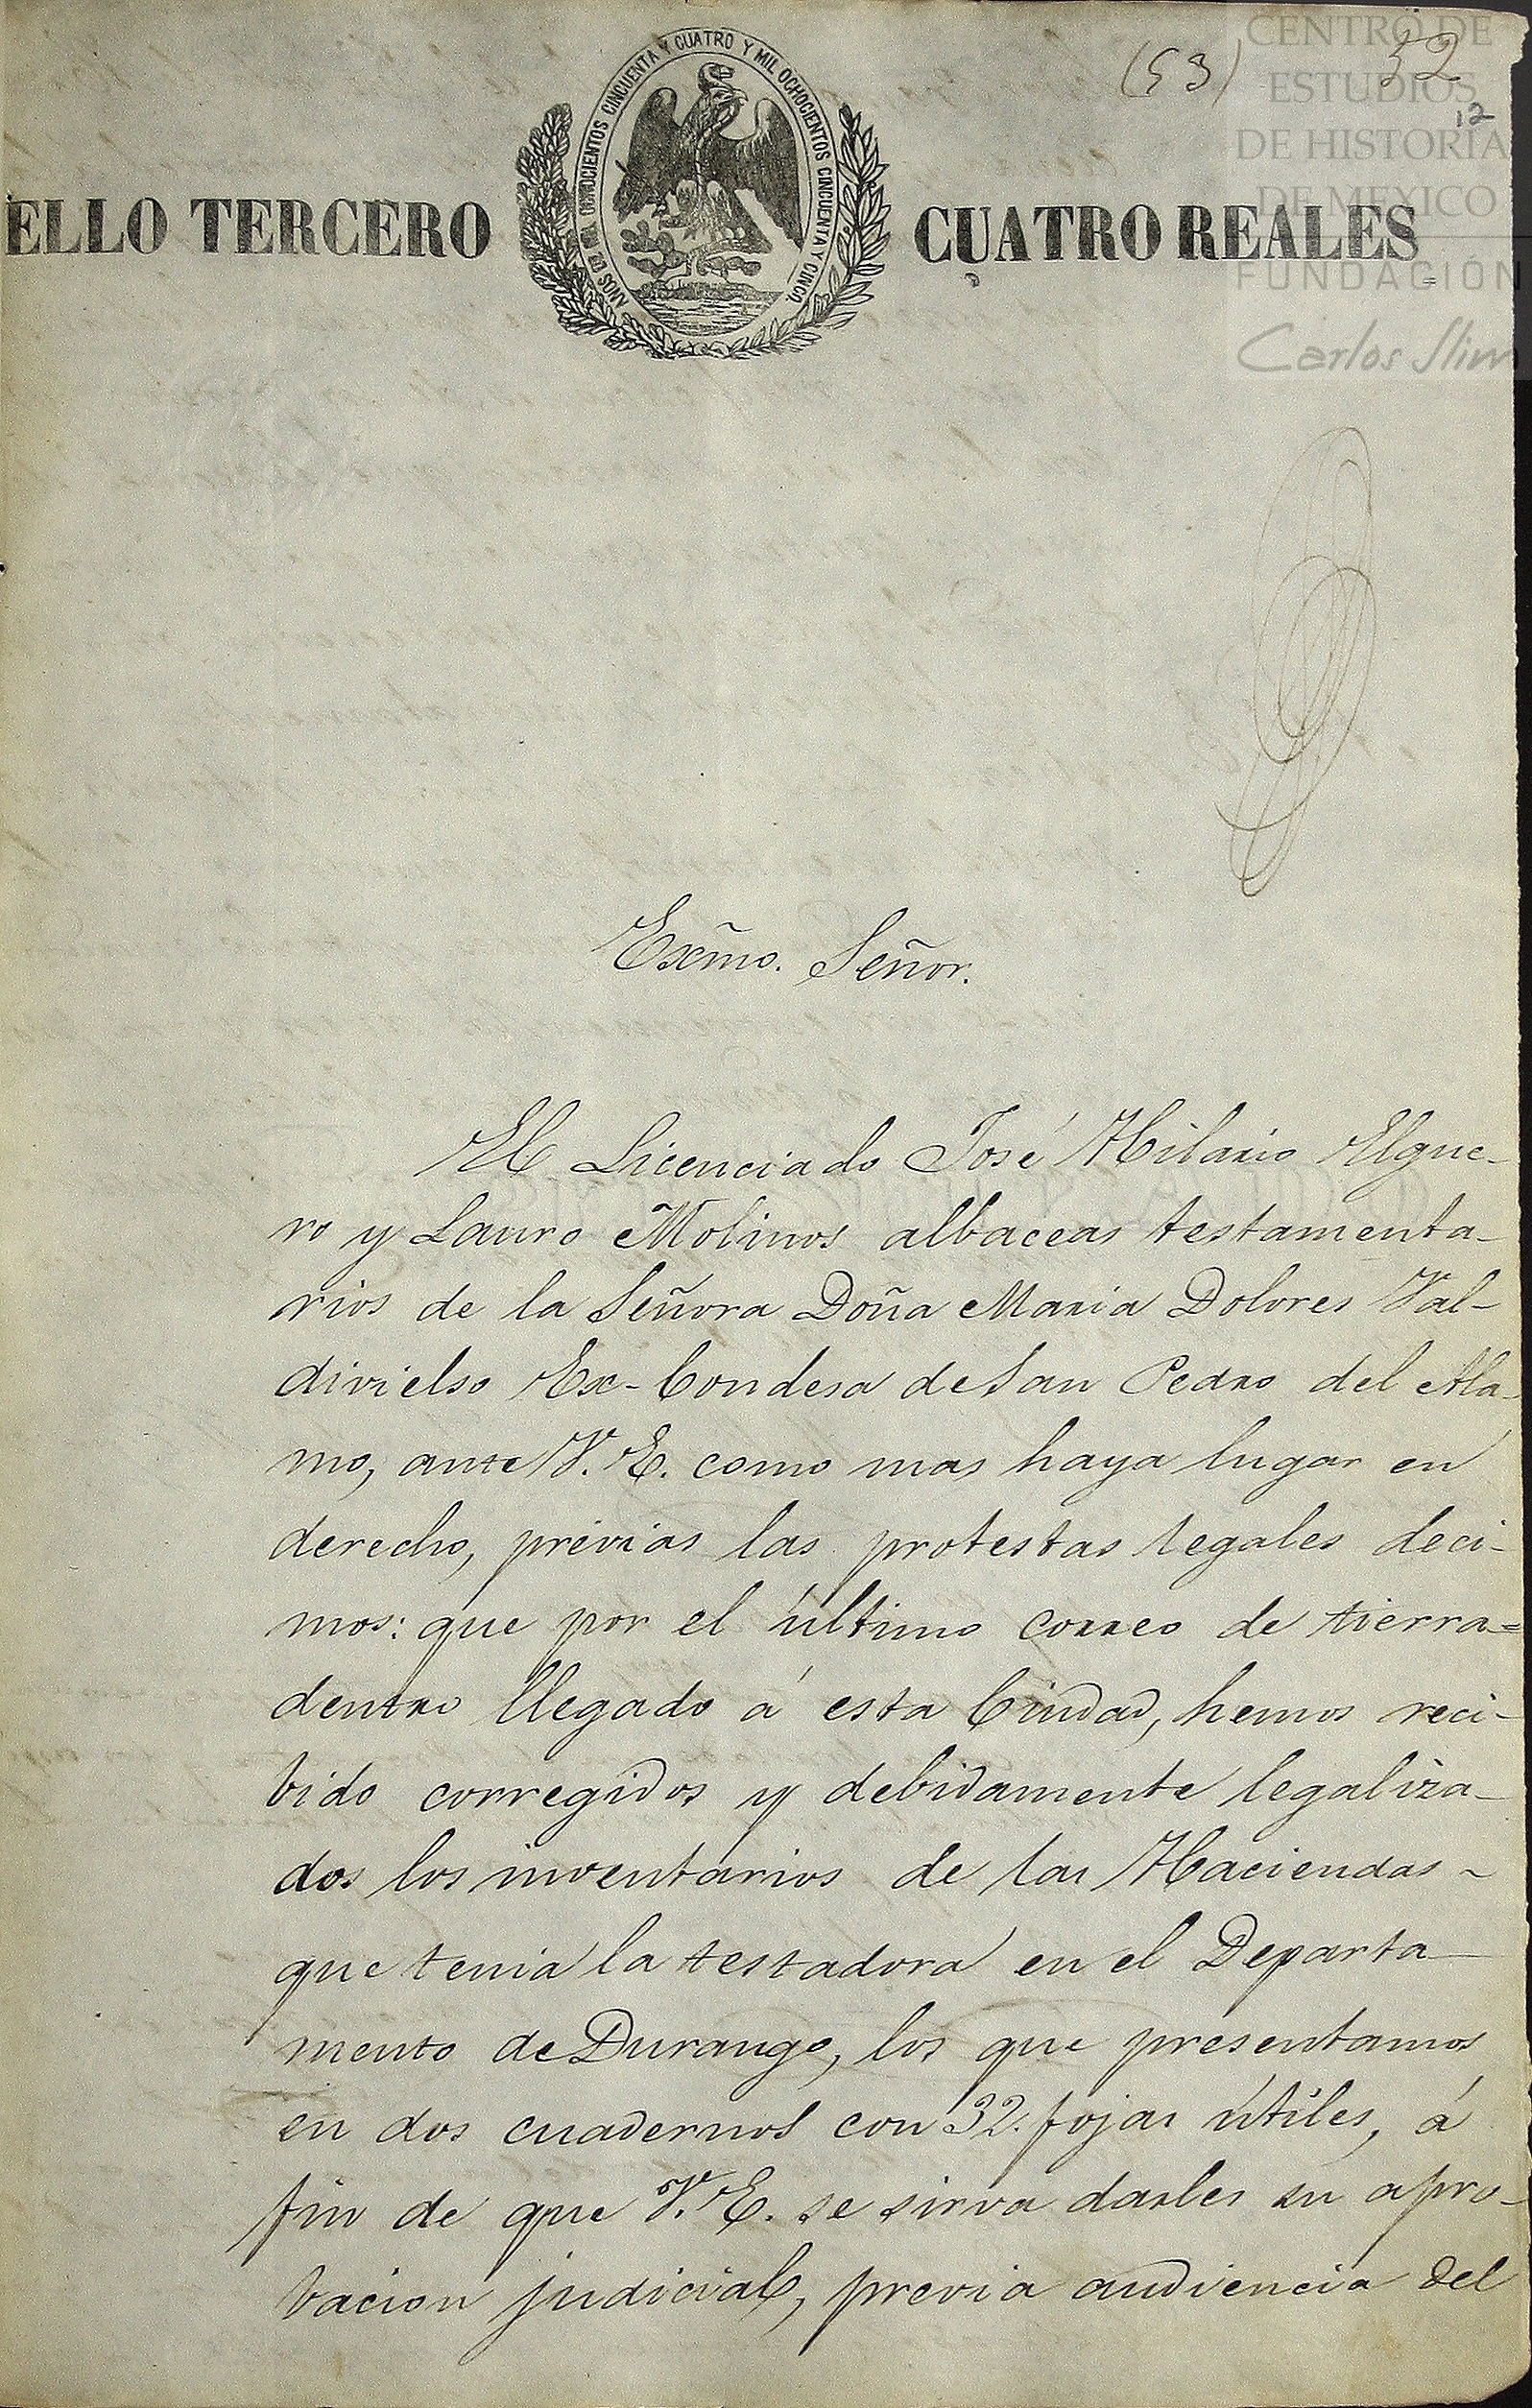 (53) 32
12
CENTRO DE
ESTUDIOS
DE HISTORIA
DE MEXICO
FUNDACIÓN
Carlos Slim
ELLO TERCERO CUATRO REALES
AÑOS DE MIL OCHOCIENTOS CINCUENTA Y CUATRO Y MIL OCHOCIENTOS CINCUENTA Y CINCO.
Exm̃o. Señor.
El Licenciado José Hilario Elgue-
ro y Lauro Molinos albaceas testamenta-
rios de la Señora Doña Maria Dolores Val-
divielso Ex-Condesa de San Pedro del Ala-
mo, ante V. E. como mas haya lugar en
derecho, previas las protestas legales deci-
mos: que por el último correo de tierra=
dentro llegado á esta Ciudad, hemos reci-
bido corregidos y debidamente legaliza-
dos los inventarios de las Haciendas ~
que tenia la testadora en el Departa-
mento de Durango, los que presentamos
en dos cuadernos con 32. fojas útiles, á
fin de que V. E. se sirva darles su apro-
bacion judicial, previa audiencia del